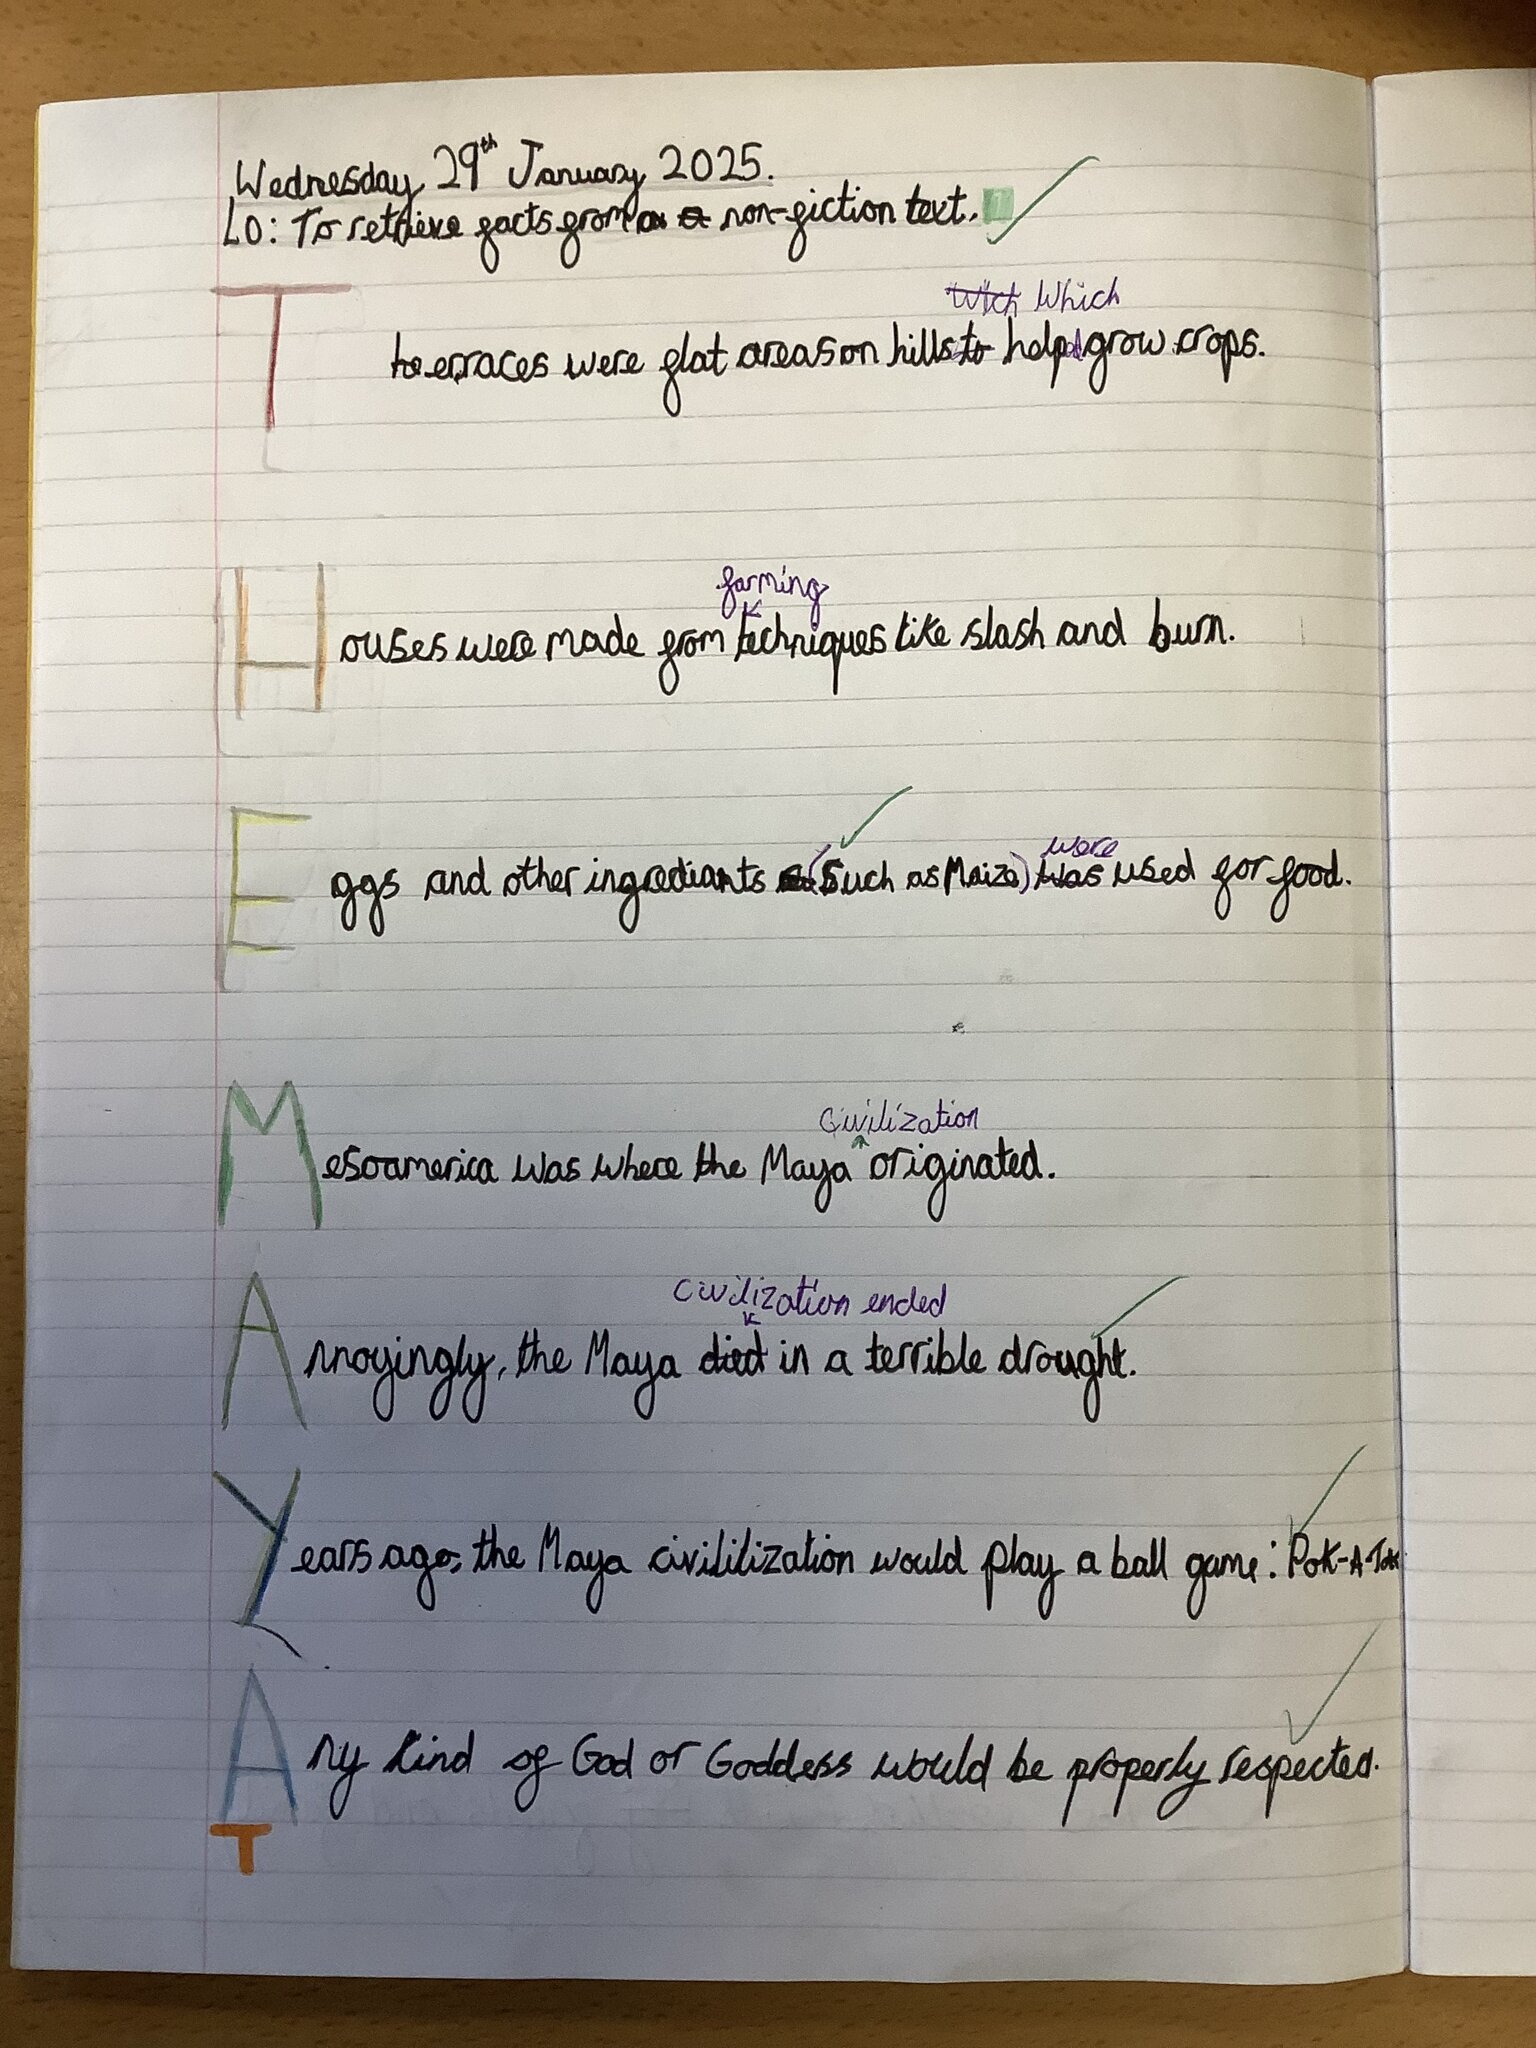 Wednesday 29th January 2025.
LO: To retrieve facts from a non-fiction text. T
Wich Which
T erraces were flat areas on hills to helped grow crops.
farming
H ouses were made from techniques like slash and burn.
were
E ggs and other ingrediants (such as Maize) was used for food.
Civilization
M esoamerica was where the Maya originated.
Civilization ended
A nnoyingly, the Maya died in a terrible drought.
Y ears ago, the Maya civililization would play a ball game: Pok-A-Tok
A ny kind of God or Goddess would be properly respected.
T